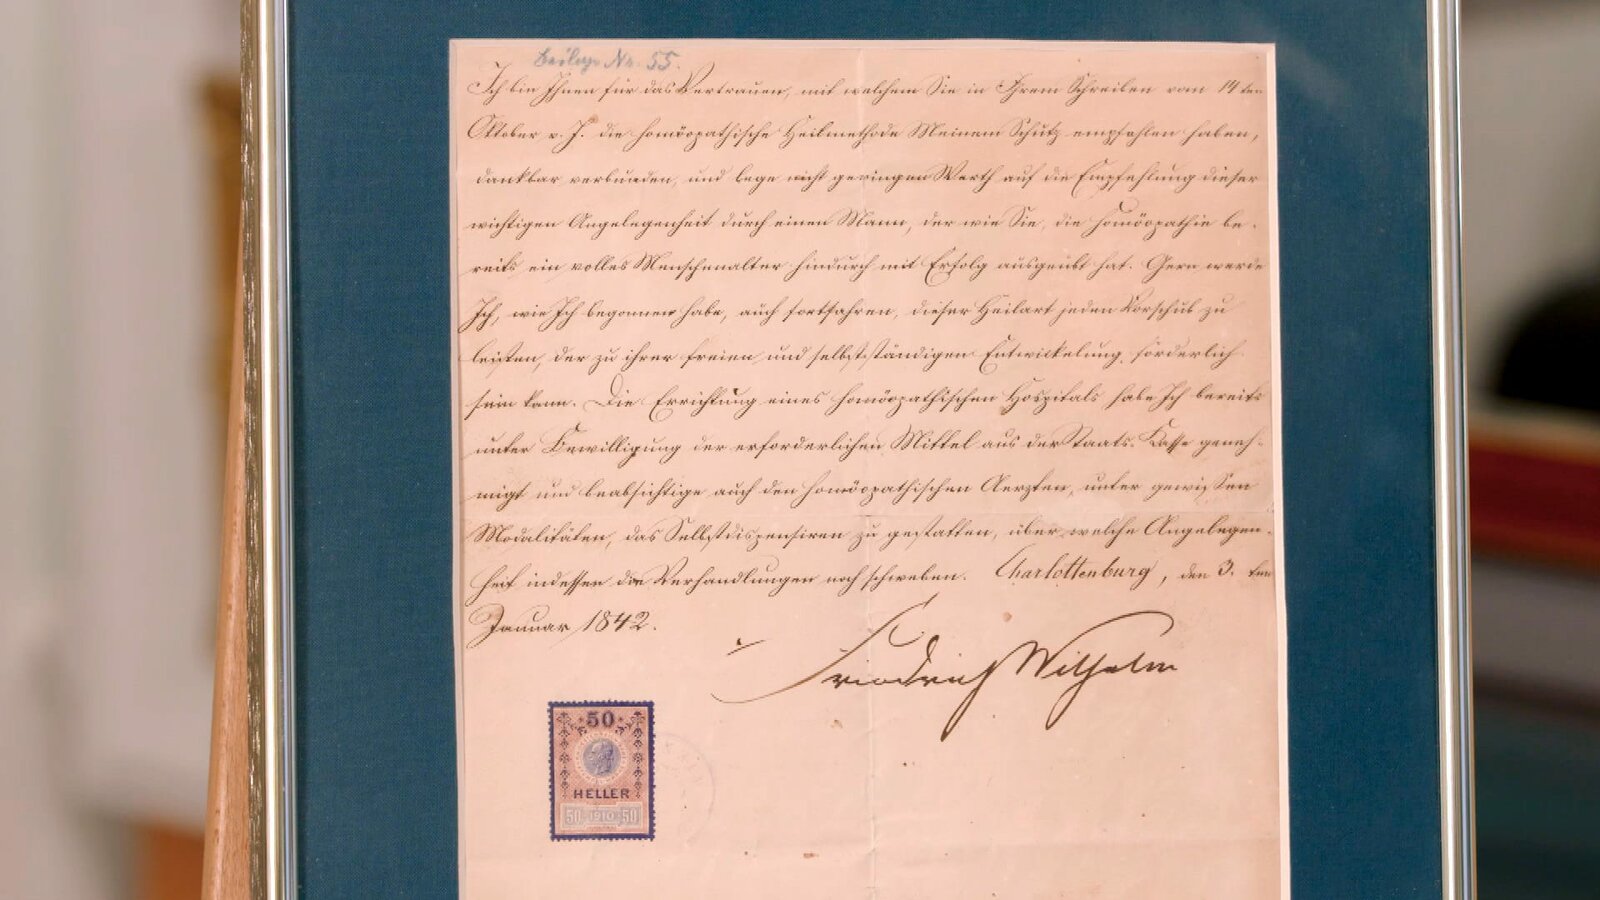 Beilage No. 55.
Ich bin Ihnen für das Vertrauen, mit welchem Sie in Ihrem Schreiben vom 14 ten
Oktober v. J. die homöopathische Heilmethode Meinem Schutz empfohlen haben,
dankbar verbunden, und lege nicht geringen Werth auf die Empfehlung dieser
wichtigen Angelegenheit durch einen Mann, der wie Sie, die Homöopathie be-
reits ein volles Menschenalter hindurch mit Erfolg ausgeübt hat. Gern werde
Ich, wie Ich begonnen habe, auch fortfahren, dieser Heilart jeden Vorschub zu
leisten, der zu ihrer freien und selbstständigen Entwickelung förderlich
sein kann. Die Errichtung eines homöopathischen Hospitals habe Ich bereits
unter Bewilligung der erforderlichen Mittel aus der Staats-Kasse geneh-
migt und beabsichtige auch den homöopathischen Aerzten, unter gewissen
Modalitäten, das Selbstdispensiren zu gestatten, über welche Angelegen-
heit indessen die Verhandlungen noch schweben. Charlottenburg, den 3. ten
Januar 1842.
Friedrich Wilhelm
50
HELLER
50 1910 50